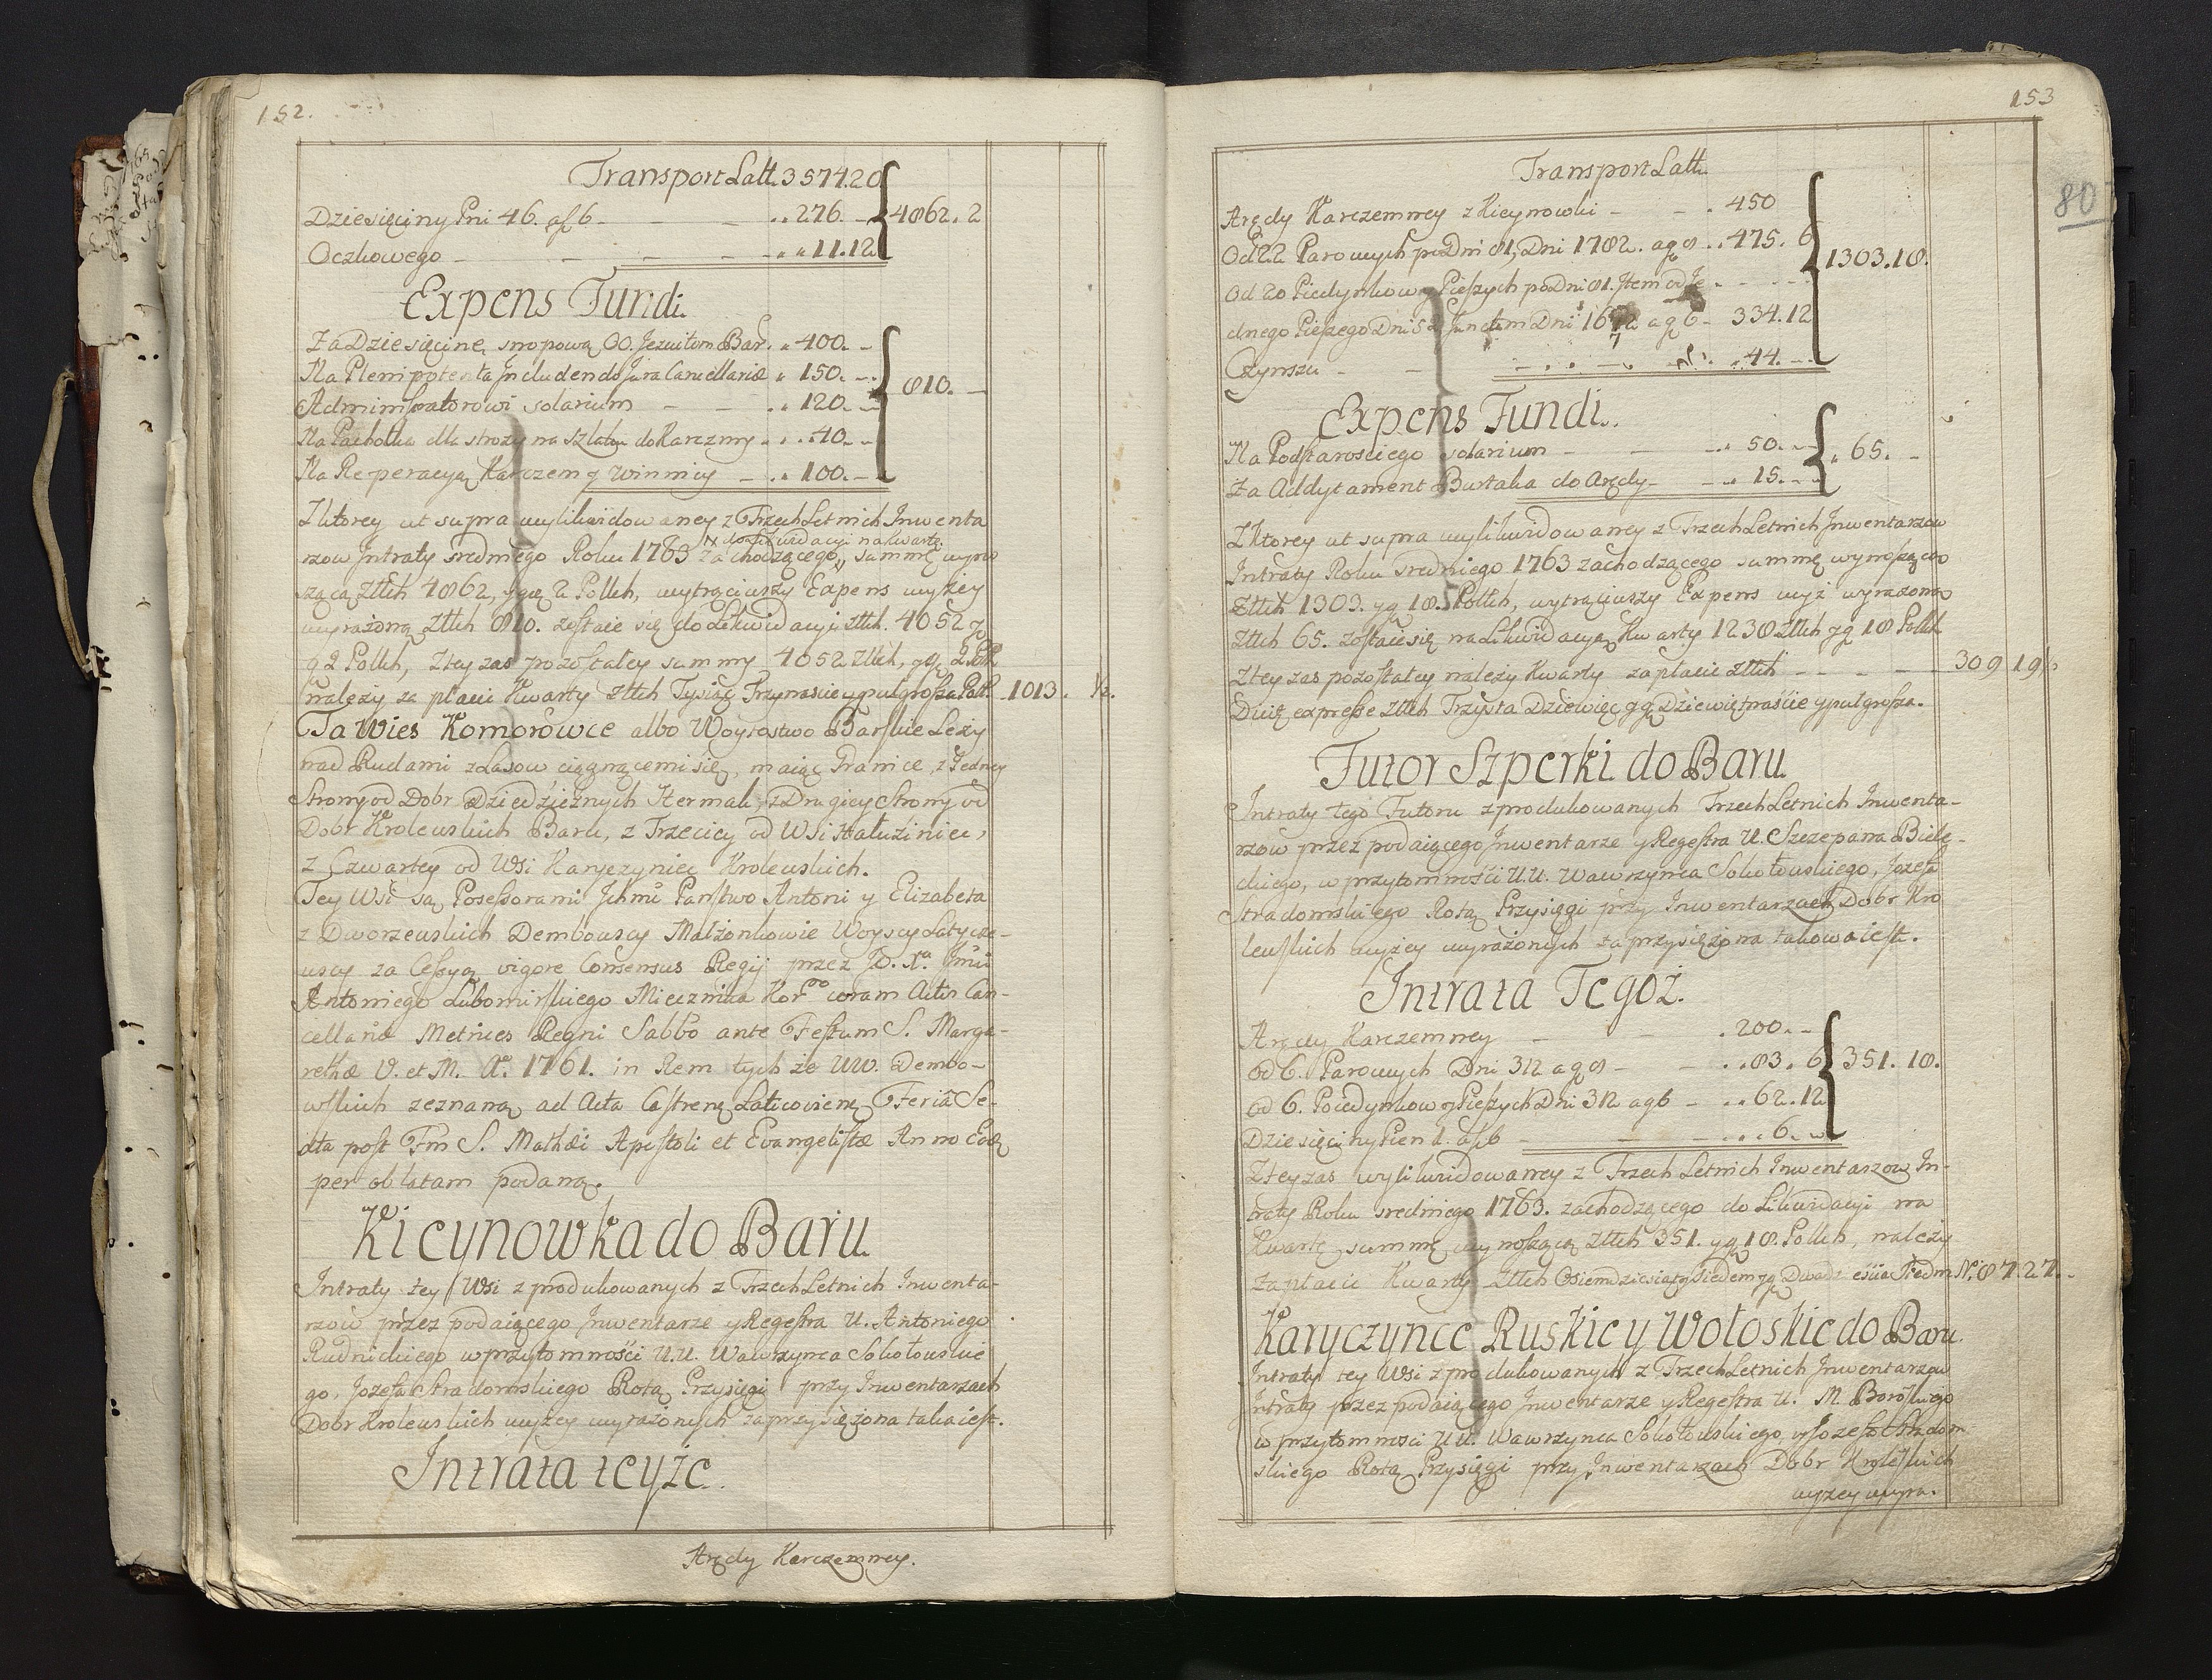 152.
Transport Latt. 3574.20
Dziesięciny Pni 46. a f 6 - - - .. 276. - 4862. 2
Oczkowego - - - - - .. 11.12
Expens Fundi.
Za Dziesięcinę snopową OO. Jezuitom Bar. .. 400. -
Na Plenipotenta Includendo Jura Cancellariæ .. 150. -
Administratorowi solarium - - .. 120. - 810. -
Na Pachołka dla stroży na szlaku do Karczmy .. 40. -
Na Reperacyą Karczem y Winnicy - .. 100. -
Z Ktorey ut supra wylikwidowaney z Trzech Letnich Inwenta
x do Likwidacyi na kwartę
rzow Intraty sredniego Roku 1763 zachodzącego x summę wyno
szącą Złtch 4862, y gr 2 Pollch, wytrąciwszy Expens wyżey
wyrażoną Złtch 810. zostaie się do Likwidacyi złtch. 4052 y
g 2 Pollch, Ztey zas pozostałey summy 4052 Złtch, y g 2 Poll
należy zapłacić Kwarty Złtch Tysiąc Trzynascie y pułgrosza Poll. 1013. ½.
Ta Wies Komorowce albo Woytostwo Barskie Leży
nad Rudami z Lasow ciągnącemi się, maiąc Granice, z Jedney
Strony od Dobr Dziedzicznych Hermak, z Drugiey Strony od
Dobr Krolewskich Baru, z Trzeciey od Wsi Hałuziniec,
z Czwartey od Wsi Karyczyniec Krolewskich.
Tey Wsi są Posessorami Ichmć Państwo Antoni y Elizabeta
z Dworzewskich Dembowscy Małżonkowie Woyscy Latycze-
wscy za Cessyą vigore Consensus Regij przez J.O. Xcia Jmci
Antoniego Lubomirskiego Miecznika Kor. coram Actis Can-
cellariæ Metrices Regni Sabbo ante Festum S. Marga-
rethæ V. et M. Ao. 1761. in Rem tych że UW. Dembo-
wskich zeznaną ad Acta Castrenę Laticovienę Feriâ Se-
xta post Fm S. Mathæi Apostoli et Evangelistæ Anno Eodę
per oblatam podaną.
Kicynowka do Baru
Intraty tey Wsi z produkowanych z Trzech Letnich Inwenta-
rzow przez podaiącego Inwentarze y Regestra U. Antoniego
Rudnickiego w przytomności U.U. Wawrzynca Sokołowskie
go, Jozefa Stradomskiego Rotą Przysięgi przy Inwentarzach
Dobr Krolewskich wyżey wyrażonych zaprzysiężona taka iest.
Intrata teyże.
Arędy Karczemney.
153
80
Transport Latt.
Arędy Karczemney z Kicynowki - - . 450
Od 22 Parowych po Dni 81, Dni 1782. a g 8 .. 475. 6
Od 20 Piedynkow y Pieszych po Dni 81. Item od Je - - - 1303.18.
dnego Pieszego Dni 52 Junctim Dni 1672 a g 6 - 334.12
7
Czynszu - - - - - .. 44. -
Expens Fundi.
Na Podstarosciego solarium - - - .. 50. - 65. -
Za Addytament Burtaka do Arędy - - .. 15. -
Z Ktorey ut supra wylikwidowaney z Trzech Letnich Inwentarzow
Intraty Roku sredniego 1763 zachodzącego summę wynoszącą
Złtch 1303. y g 18. Pollch, wytrąciwszy Expens wyż wyrażoną
Złtch 65. zostaie się na Likwidacyą Kwarty 1238 Złtch y g 18 Pollch
Ztey zas pozostałey należy Kwarty zapłacić złtch - - - - 309 19 ½
Duię expresse Złtch Trzysta Dziewięć y g Dziewiętnaście y pułgrosza.
Futor Szperki do Baru
Intraty tego Futoru z produkowanych Trzech Letnich Inwenta-
rzow przez podaiącego Inwentarze y Regestra U. Szczepana Biele-
ckiego, w przytomności U.U. Wawrzynca Sokołowskiego, Jozefa
Stradomskiego Rotą Przysięgi przy Inwentarzach Dobr Kro
lewskich wyżey wyrażonych zaprzysiężona takowa iest.
Intrata Tegoż.
Arędy Karczemney - - . 200. -
od 6. Parowych Dni 312 a g 8 - - .. 83. 6 351. 18.
od 6. Poiedynkow y Pieszych Dni 312 a g 6 - .. 62. 12
Dziesięciny Pien 1. a f 6 - - - .. 6. -
Ztey zas wylikwidowaney z Trzech Letnich Inwentarzow In-
traty Roku sredniego 1763. zachodzącego do Likwidacyi na
Kwartę summę wynoszącą Złtch 351. y g 18. Pollch, należy
zapłacić Kwarty Złtch Osiemdziesiąt y Siedem y g Dwadziescia Siedm N. 87. 27. -
Karyczynce Ruskie y Wołoskie do Baru
Intraty tey Wsi z produkowanych z Trzech Letnich Inwentarzow
Intraty przez podaiącego Inwentarze y Regestra U. M. Borołkiego
w przytomności U.U. Wawrzynca Sokołowskiego, y Jozefa Stradom
skiego Rotą Przysięgi przy Inwentarzach Dobr Krolewskich
wyżey wyra.